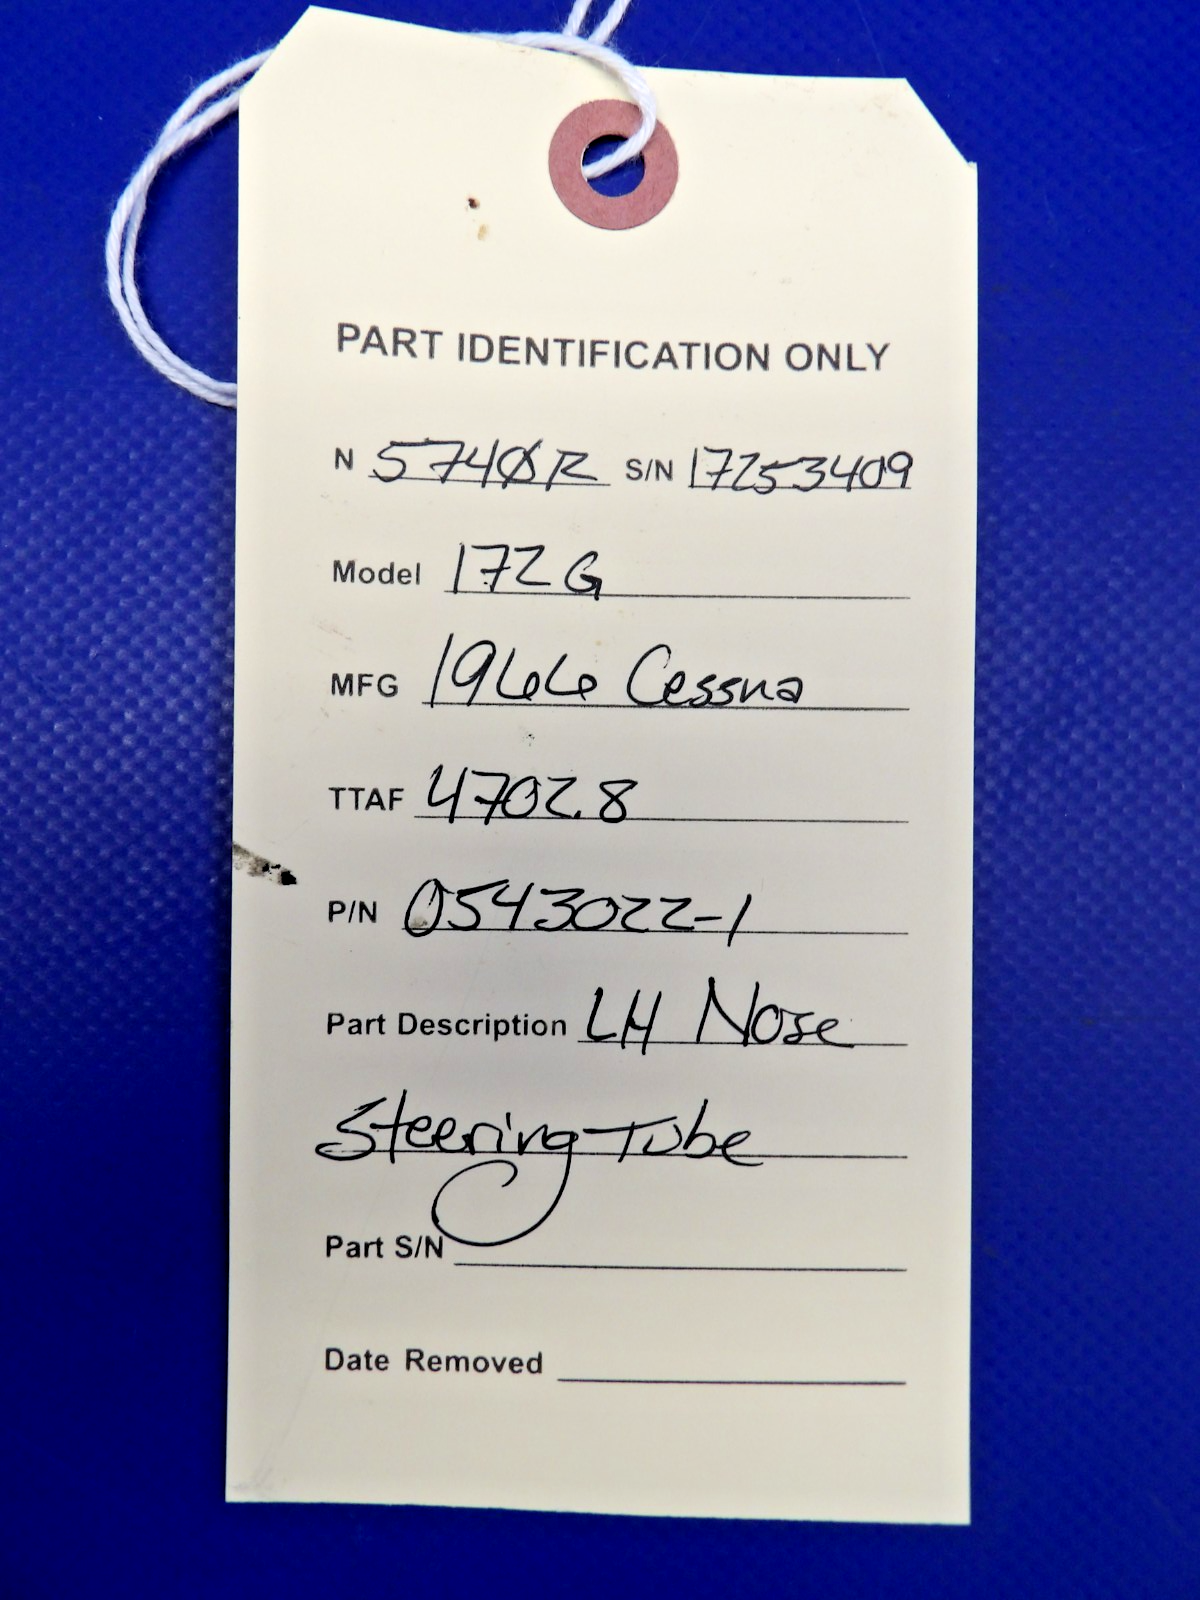 PART IDENTIFICATION ONLY
N 5740R S/N 17253409
Model 172G
MFG 1966 Cessna
TTAF 4702.8
P/N 0543022-1
Part Description LH Nose
Steering Tube
Part S/N
Date Removed